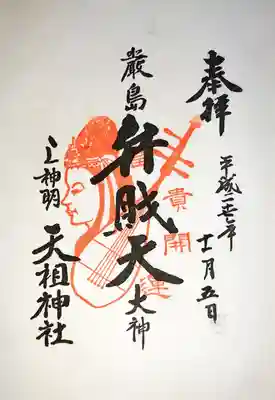 奉拝
平成二十七年
十一月五日
厳島
弁財天
大神
貴
開
運
上神明
天祖神社